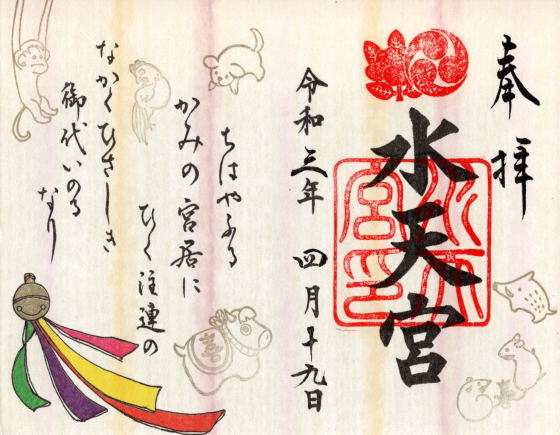 奉拝
水天宮
水天宮印
令和三年 四月十九日
ちはやふる
かみの宮居に
ひく注連の
なかくひさしき
御代いのる
なり